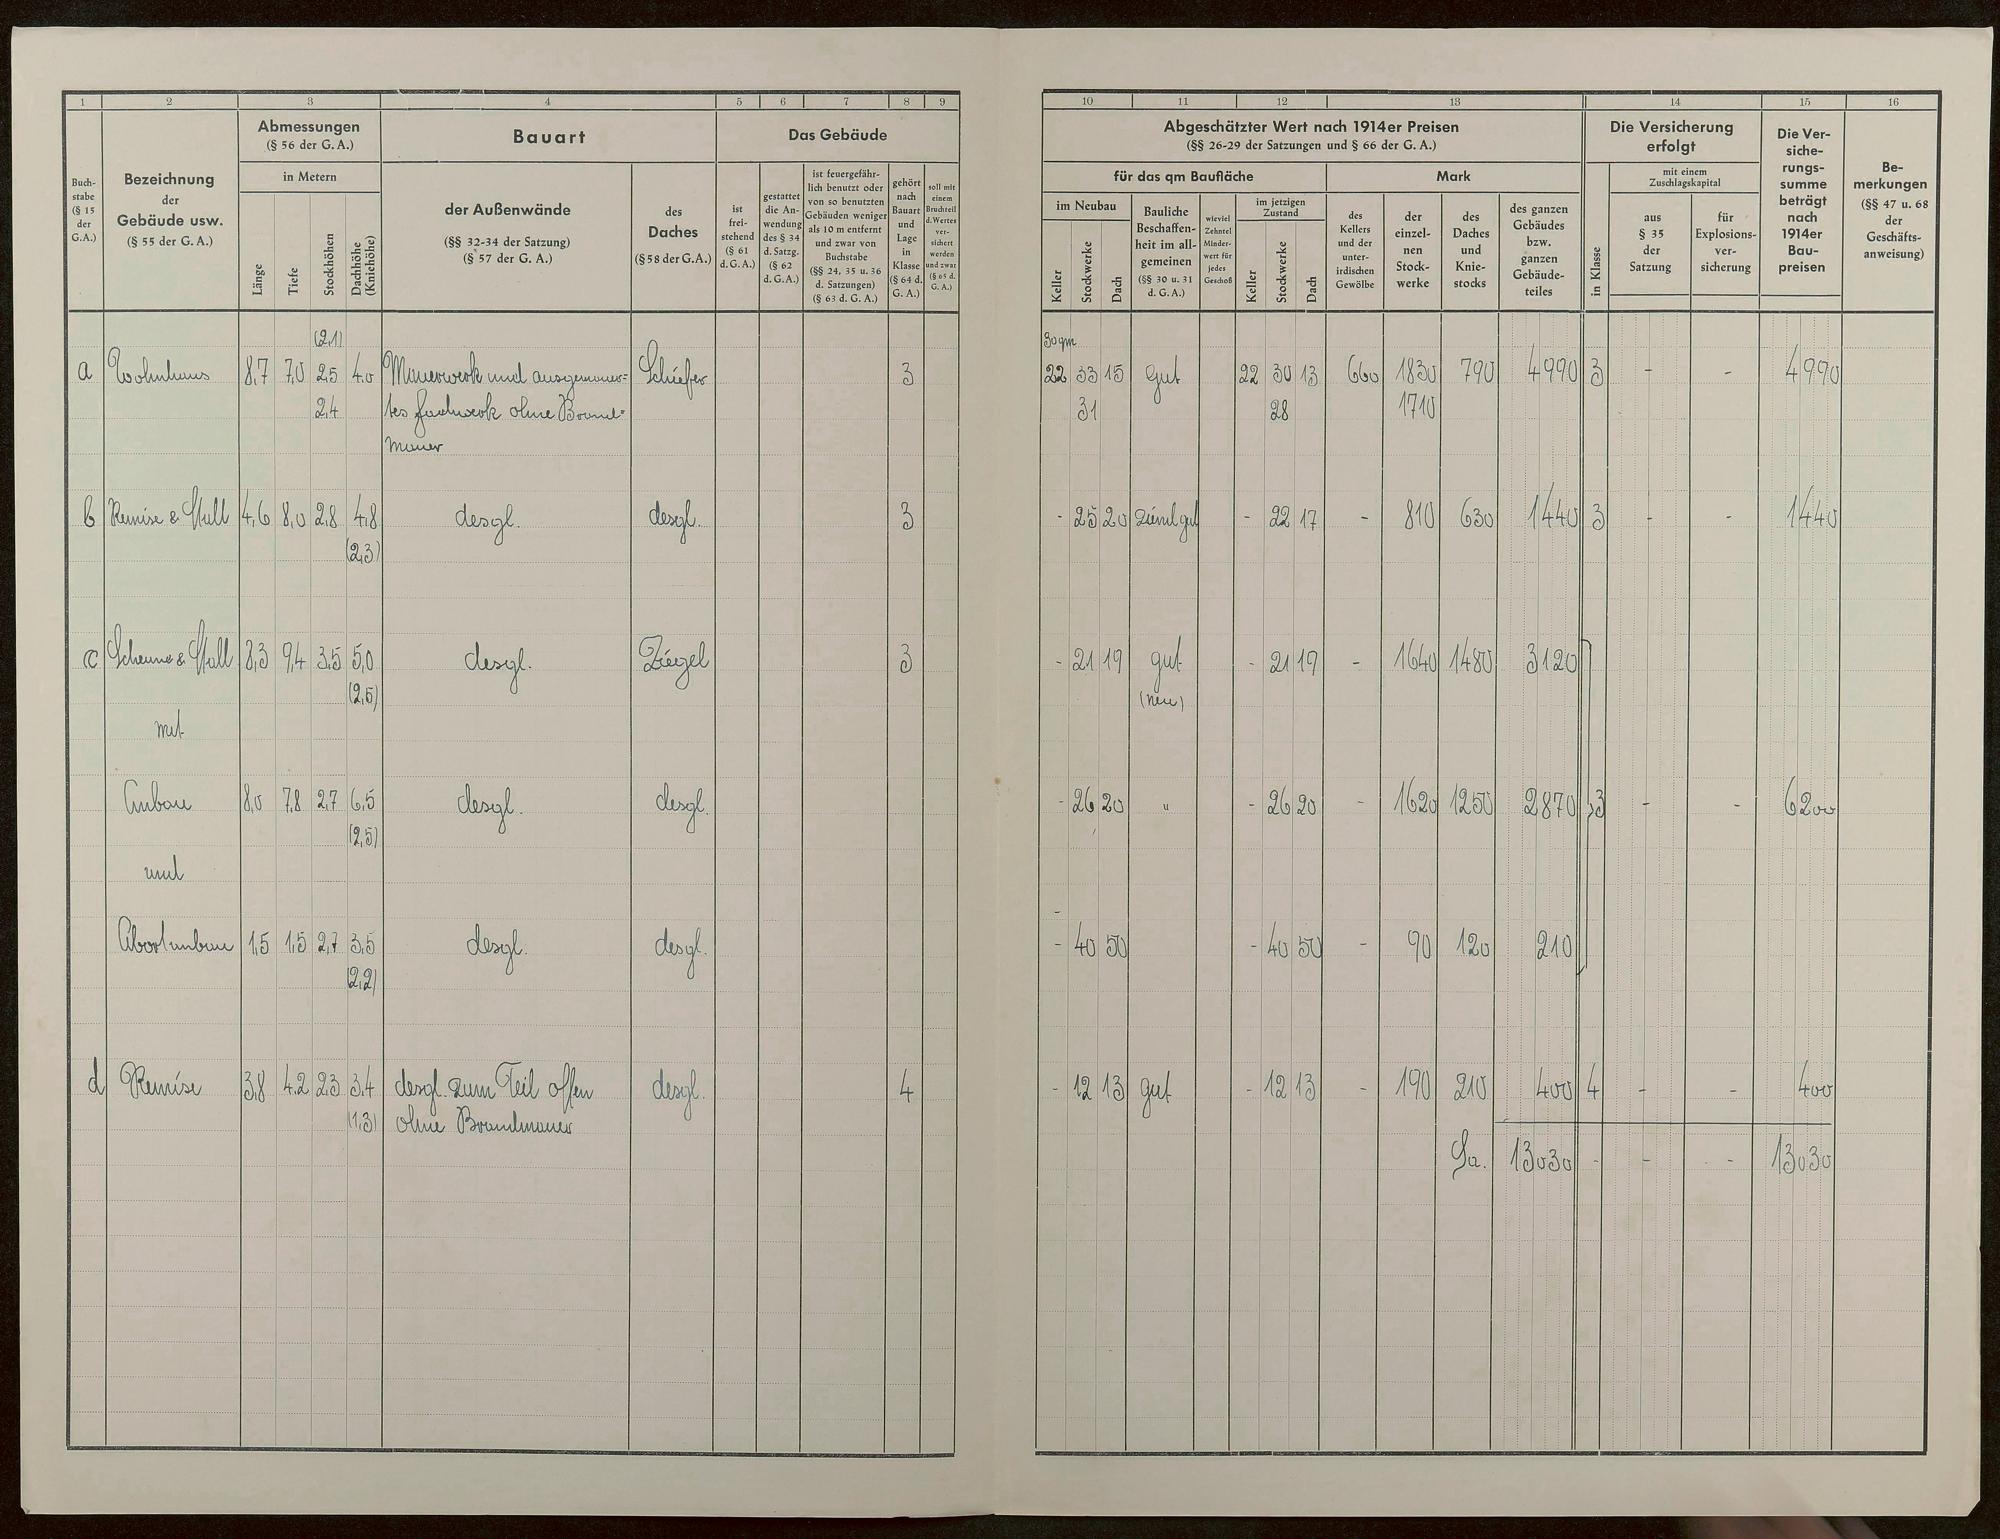 1 2 3 4 5 6 7 8 9
Abmessungen
(§ 56 der G. A.)
Bauart
Das Gebäude
Buch-
stabe
(§ 15
der
G.A.)
Bezeichnung
der
Gebäude usw.
(§ 55 der G. A.)
in Metern
Länge
Tiefe
Stockhöhen
Dachhöhe
(Kniehöhe)
der Außenwände
(§§ 32-34 der Satzung)
(§ 57 der G. A.)
des
Daches
(§ 58 der G.A.)
ist
frei-
stehend
(§ 61
d. G. A.)
gestattet
die An-
wendung
des § 34
d. Satzg.
(§ 62
d. G. A.)
ist feuergefähr-
lich benutzt oder
von so benutzten
Gebäuden weniger
als 10 m entfernt
und zwar von
Buchstabe
(§§ 24, 35 u. 36
d. Satzungen)
(§ 63 d. G. A.)
gehört
nach
Bauart
und
Lage
in
Klasse
(§ 64 d.
G. A.)
soll mit
einem
Bruchteil
d. Wertes
ver-
sichert
werden
und zwar
(§ 65 d.
G. A.)
(2,1)
a Wohnhaus 8,7 7,0 2,5 4,0 Mauerwerk und ausgemauer= Schiefer 3
2,4 tes Fachwerk ohne Brand=
mauer
b Remise & Stall 4,6 8,0 2,8 4,8 desgl. desgl. 3
(2,3)
c Scheune & Stall 8,3 9,4 3,5 5,0 desgl. Ziegel 3
(2,5)
mit
Anbau 8,0 7,8 2,7 6,5 desgl. desgl.
(2,5)
und
Abortanbau 1,5 1,5 2,7 3,5 desgl. desgl.
(2,2)
d Remise 3,8 4,2 2,3 3,4 desgl. zum Teil offen desgl. 4
(1,3) ohne Brandmauer
10 11 12 13 14 15 16
Abgeschätzter Wert nach 1914er Preisen
(§§ 26-29 der Satzungen und § 66 der G. A.)
Die Versicherung
erfolgt
Die Ver-
siche-
rungs-
summe
beträgt
nach
1914er
Bau-
preisen
Be-
merkungen
(§§ 47 u. 68
der
Geschäfts-
anweisung)
für das qm Baufläche
Mark
mit einem
Zuschlagskapital
im Neubau
Keller
Stockwerke
Dach
Bauliche
Beschaffen-
heit im all-
gemeinen
(§§ 30 u. 31
d. G. A.)
wieviel
Zehntel
Minder-
wert für
jedes
Geschoß
im jetzigen
Zustand
Keller
Stockwerke
Dach
des
Kellers
und der
unter-
irdischen
Gewölbe
der
einzel-
nen
Stock-
werke
des
Daches
und
Knie-
stocks
des ganzen
Gebäudes
bzw.
ganzen
Gebäude-
teiles
in Klasse
aus
§ 35
der
Satzung
für
Explosions-
ver-
sicherung
30 qm
22 33 15 gut 22 30 13 660 1830 790 4990 3 - - 4990
31 28 1710
- 25 20 zieml gut - 22 17 - 810 630 1440 3 - - 1440
- 21 19 gut - 21 19 - 1640 1480 3120
(neu)
- 26 20 " - 26 20 - 1620 1250 2870 3 - - 6200
- 40 50 - 40 50 - 90 120 210
- 12 13 gut - 12 13 - 190 210 400 4 - - 400
Sa. 13030 - - - 13030